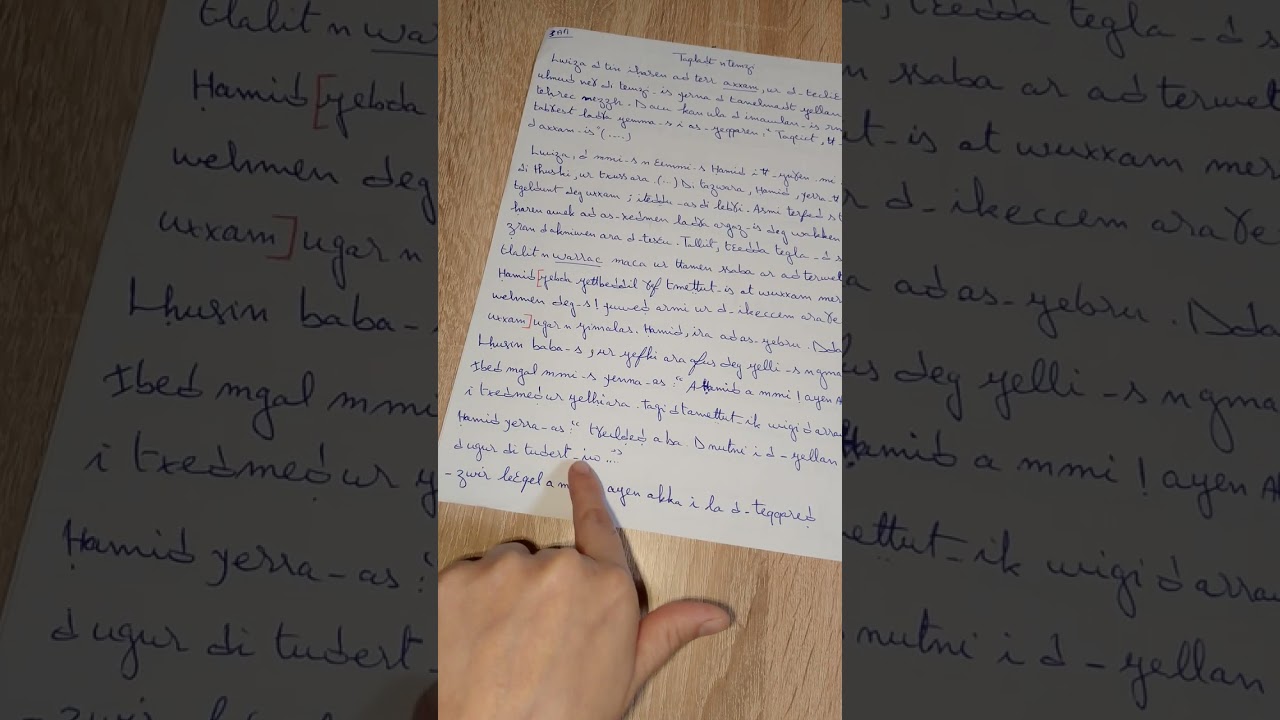 3AM
Taqladt n temzi
Lwiza d tin iharen ad terr axxam, ur d-teclit
di temẓi-is yerna d tanelmadt yellan
D acu kan ula d imawlan-is
yemma-s i as-yeqqaren "
d axxam-is" (....)
Lwiza, d mmi-s n Ɛemmi-s Ḥamid i tt-yuɣen mi
di thuski, ur txussara. (...) Di tazwara, Ḥamid, yerra-tt
tgeldunt deg uxxam ; iteddu-as di lebɣi. Asmi terfed s t
haren amek ad as-xedmen ladɣa argaz-is deg wakken
zran d akniwen ara d-tesɛu. Tallit, tɛedda tegla-d s
tlalit n warrac maca ur ttamen ssaba ar ad terwet
Ḥamid [yebda yettbeddil ɣef tmeṭṭut-is at wuxxam mer
wehmen deg-s ! yuweḍ armi ur d-ikeccem ara ɣe
uxxam] ugar n yimalas. Ḥamid, ira ad as-yebru. Dda
Lḥusin baba-s ; ur yefki ara afus deg yelli-s n gma
Ibed mgal mmi-s yenna-as : " A Ḥamid a mmi ! ayen A
i txedmeḍ ur yelhi ara. tagi d tameṭṭut-ik wigi d arra
Ḥamid yerra-as : " tɣelḍeḍ a ba. D nutni i d-yellan
d ugur di tudert-iw ...."
- zwir leɛqel a m ayen akka i la d-teqqareḍ